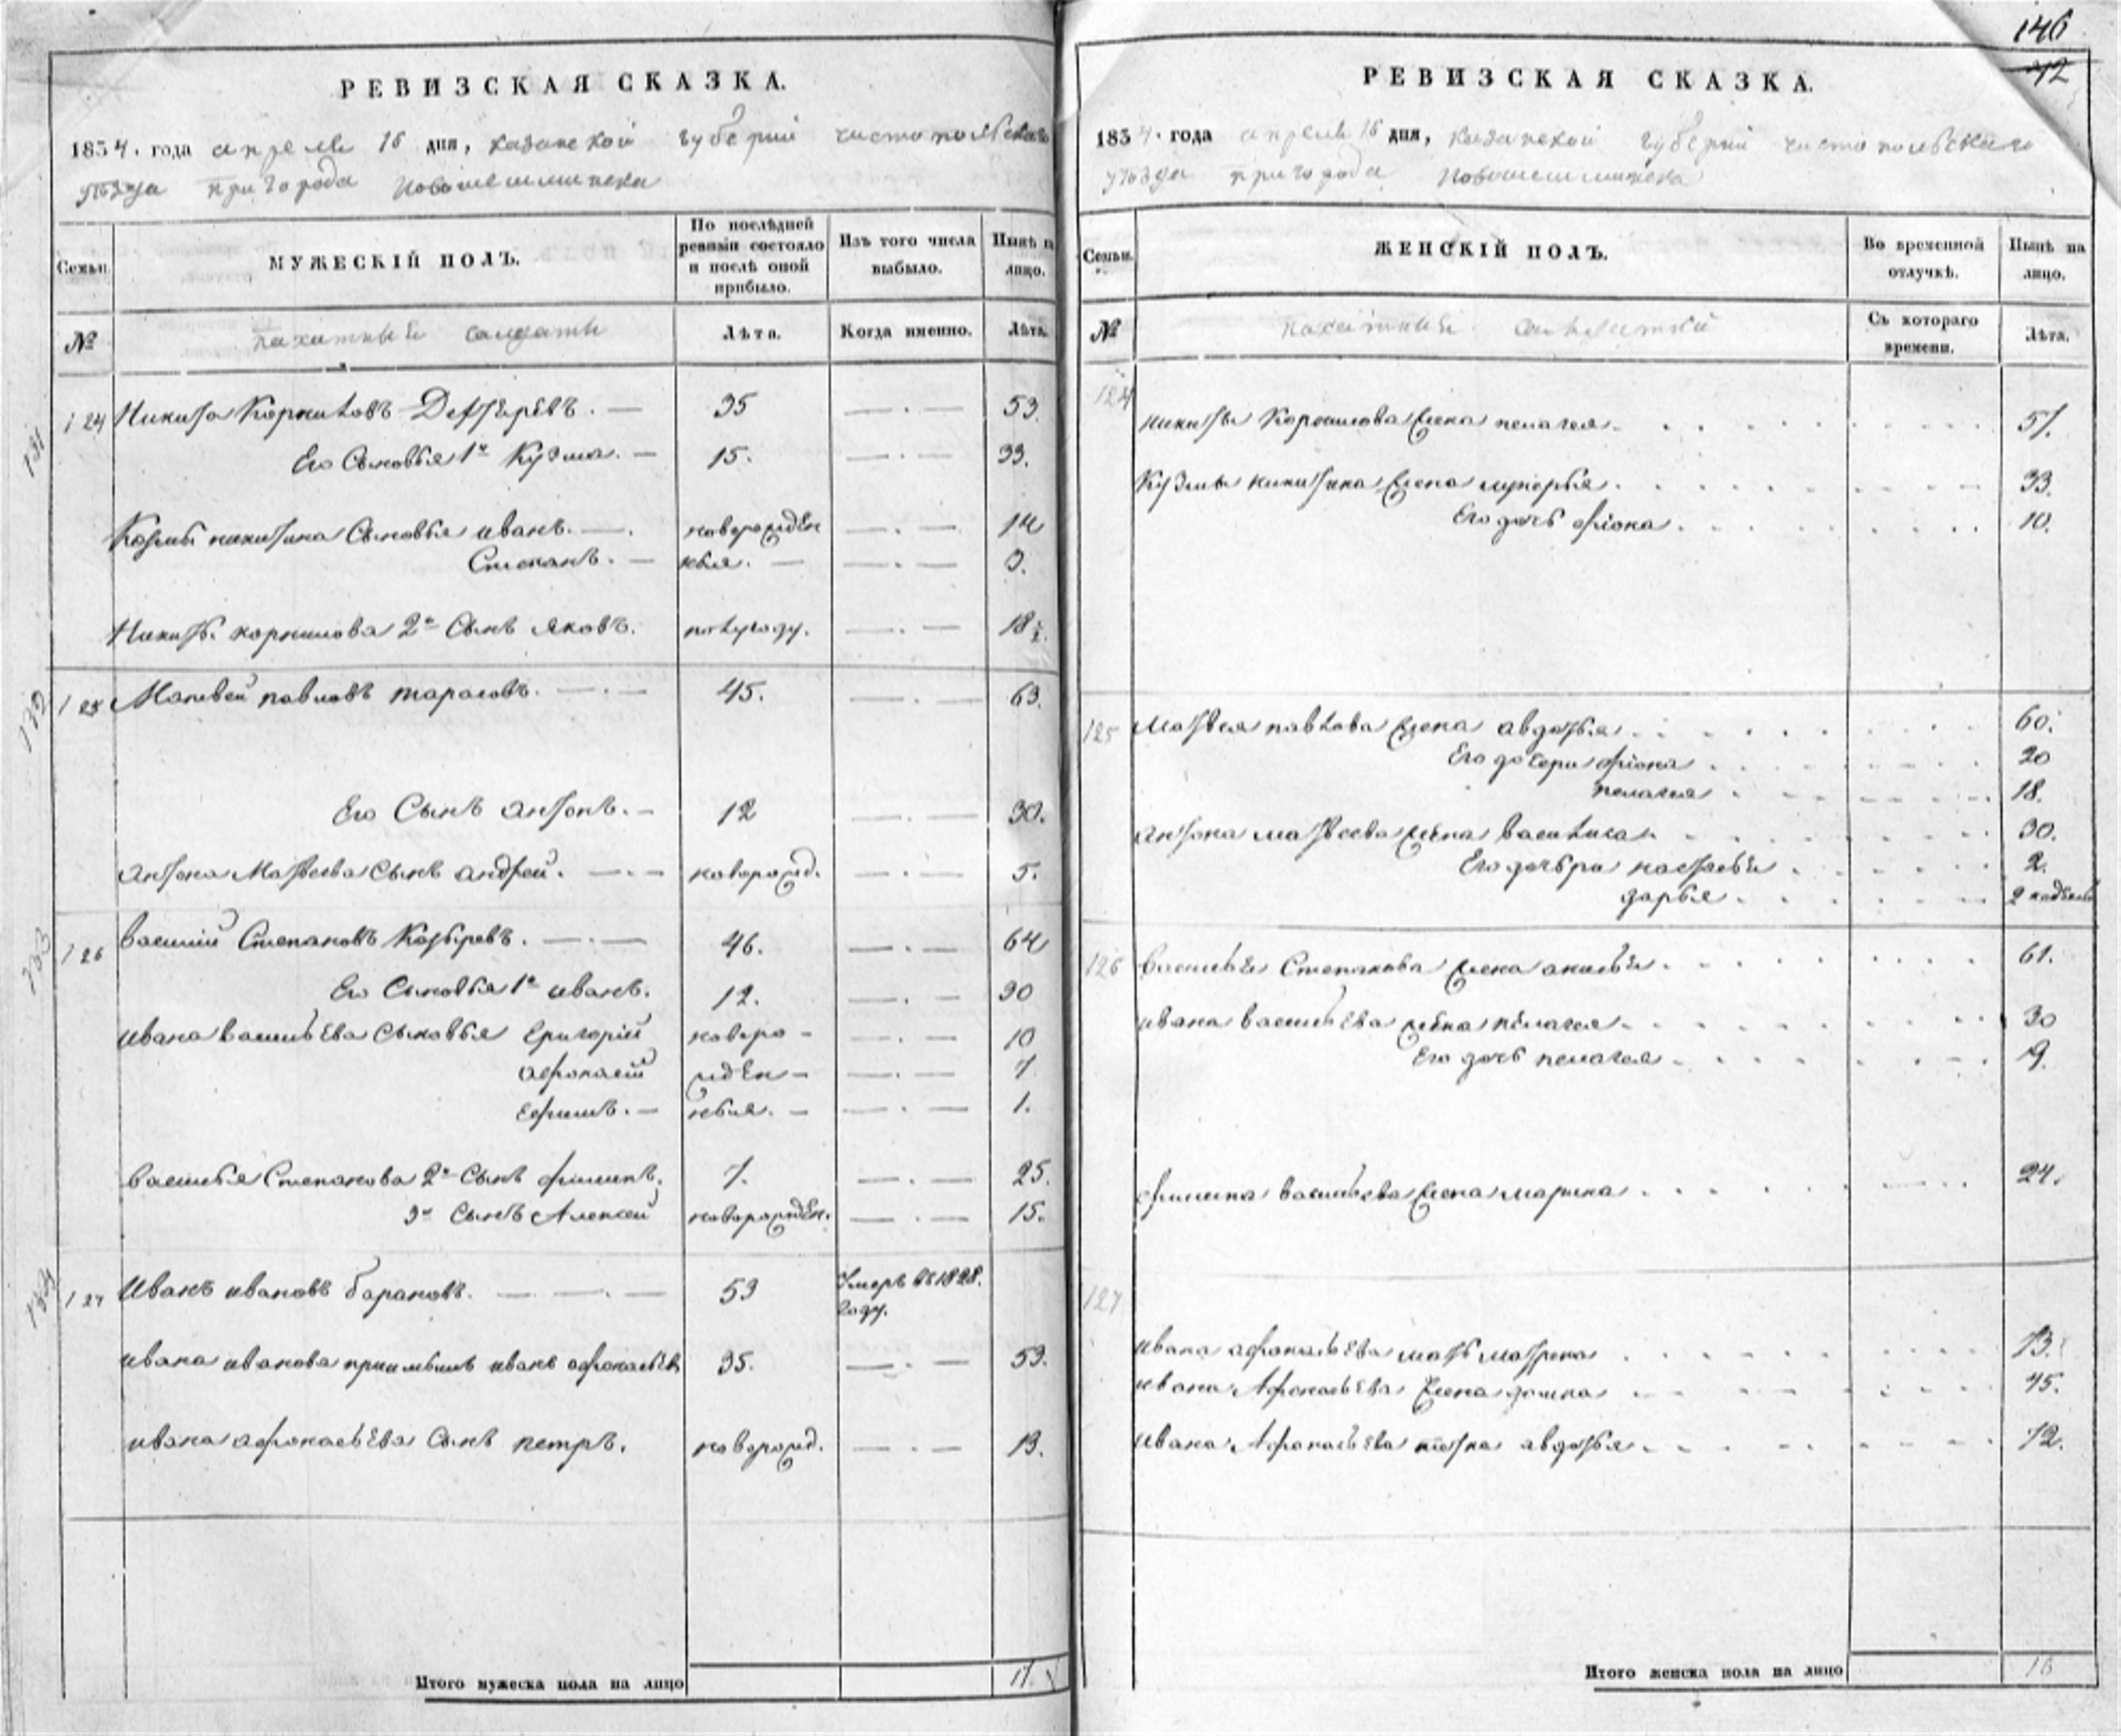 РЕВИЗСКАЯ СКАЗКА.
1834. года апреля 16 дня, казанской губернии чистопольскаго
уѣзда пригорода новошешминска
Семьи.
МУЖЕСКІЙ ПОЛЪ.
По послѣдней ревизіи состояло и послѣ оной прибыло.
Изъ того числа выбыло.
Нынѣ на лицо.
№
пахатныѣ салдаты
Лѣта.
Когда именно.
Лѣта.
131
124 Никита Корниловъ Дегтеревъ. 35 53.
Его Сыновья 1й Кузма. 15. 33.
Козмы никитина Сыновья иванъ. новорожден 14
Степанъ. ныя. 3.
Никиты корнилова 2й Сынъ яковъ. полугоду. 18½.
132
125 Матвей павловъ тарасовъ. 45. 63.
Его Сынъ антонъ. 12 30.
антона Матвеева Сынъ андрей.новорожд. 5.
133
126 василий Степановъ Козыревъ. 46. 64
Его Сыновья 1й иванъ. 12. 30
ивана васильева Сыновья Григорій новоро- 10
афонасій жден- 7
ефимъ. ныя. 1.
василья Степанова 2й Сынъ филипъ. 7. 25.
3й Сынъ Алексей новорожден. 15.
134
127 Иванъ ивановъ барановъ. 53 Умеръ въ 1828. году.
ивана иванова приимышъ иванъ афонасьев 35. 53.
ивана афонасьева Сынъ петръ. новорожд. 13.
Итого мужеска пола на лицо 17.
146
42
РЕВИЗСКАЯ СКАЗКА.
1834. года апреля 16 дня, казанской губернии чистопольскаго
уѣзда пригорода новошешминска
Семьи.
ЖЕНСКІЙ ПОЛЪ.
Во временной отлучкѣ.
Нынѣ на лицо.
№
пахатныѣ
Съ котораго времени.
Лѣта.
124 никиты Корнилова жена пелагея. 51.
Кузмы никитина жена лукерья. 33.
Его дочь фіона. 10.
125 Матвея павлова жена авдотья. 60.
Его дочери фіона 20
пелагея 18.
антона матвеева жена василиса 30.
Его дочьри настасья 2.
дарья. 2 надели
126 василья Степанова жена акилина. 61.
ивана васильева жена пелагея. 30
Его дочь пелагея. 9.
филипа васильева жена марина. 24.
127
ивана афонасьева мать матрена 73.
ивана Афонасьева жена домна 45.
ивана Афонасьева тетка авдотья. 72.
Итого женска пола на лицо 16